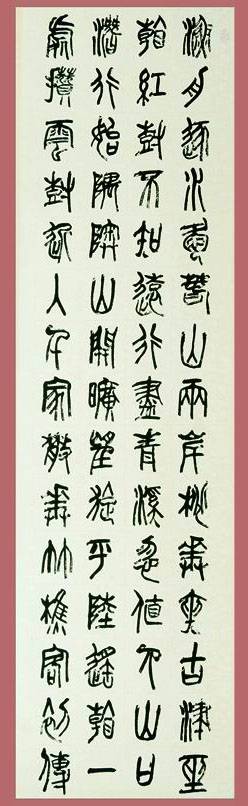 漁舟逐水愛春山兩岸桃華夾古津坐
看紅樹不知遠行盡青溪忽值人山口
潛行始隈隩山開曠望旋平陸遙看一
處攢雲樹近入千家散華竹樵客初傳